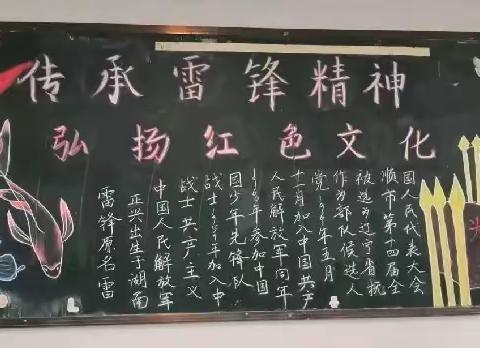 传承雷锋精神
弘扬红色文化
雷锋原名雷
正兴出生于湖南
中国人民解放军
战士共产主义
战士 年加入中
国少年先锋队
年参加中国
人民解放军同年
十一月加入中国共产
党 年五月
作为部队候选人
被选为辽宁省抚
顺市第十四届全
国人民代表大会